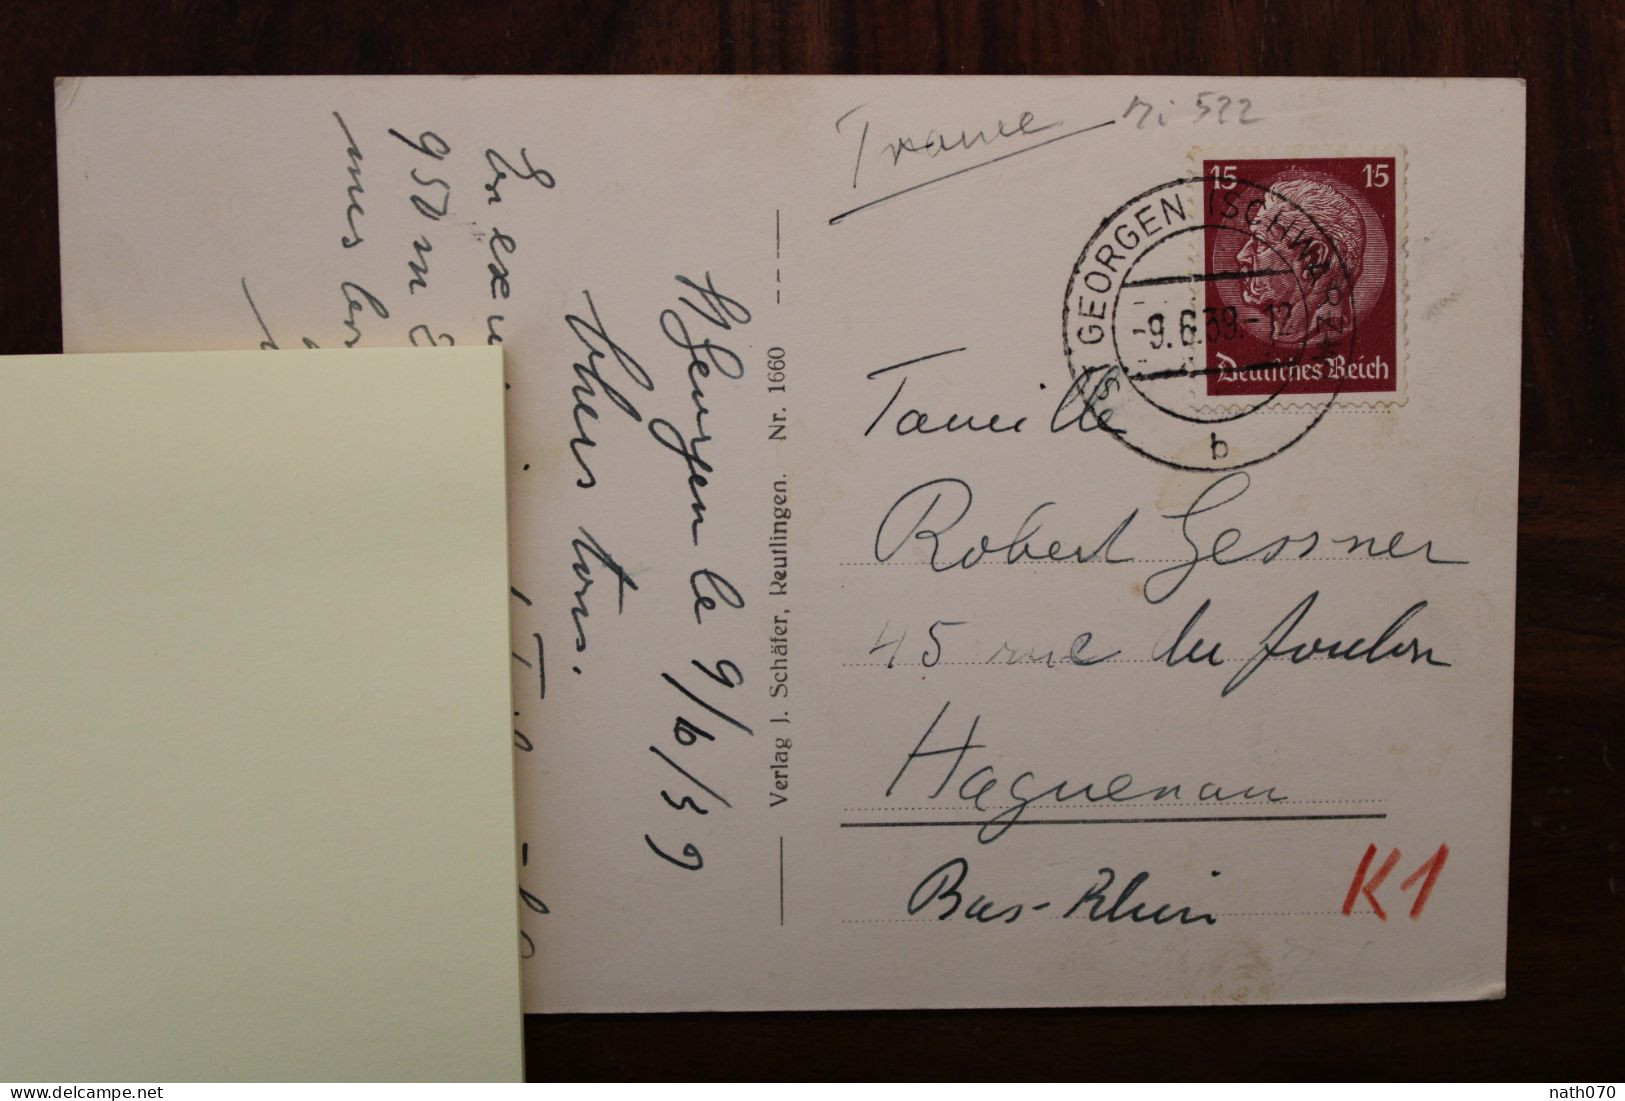 St Georgen le 9/6/39
Chers tous.
En excu
950 m
Verlag J. Schäfer, Reutlingen. Nr. 1660
France
Mi 522
15 15
Deutsches Reich
ST GEORGEN (SCHWARZW
-9.6.39.-12
b
Famille
Robert Gessner
45 rue du
Haguenau
Bas-Rhin
K1
delcampe.net
nath070